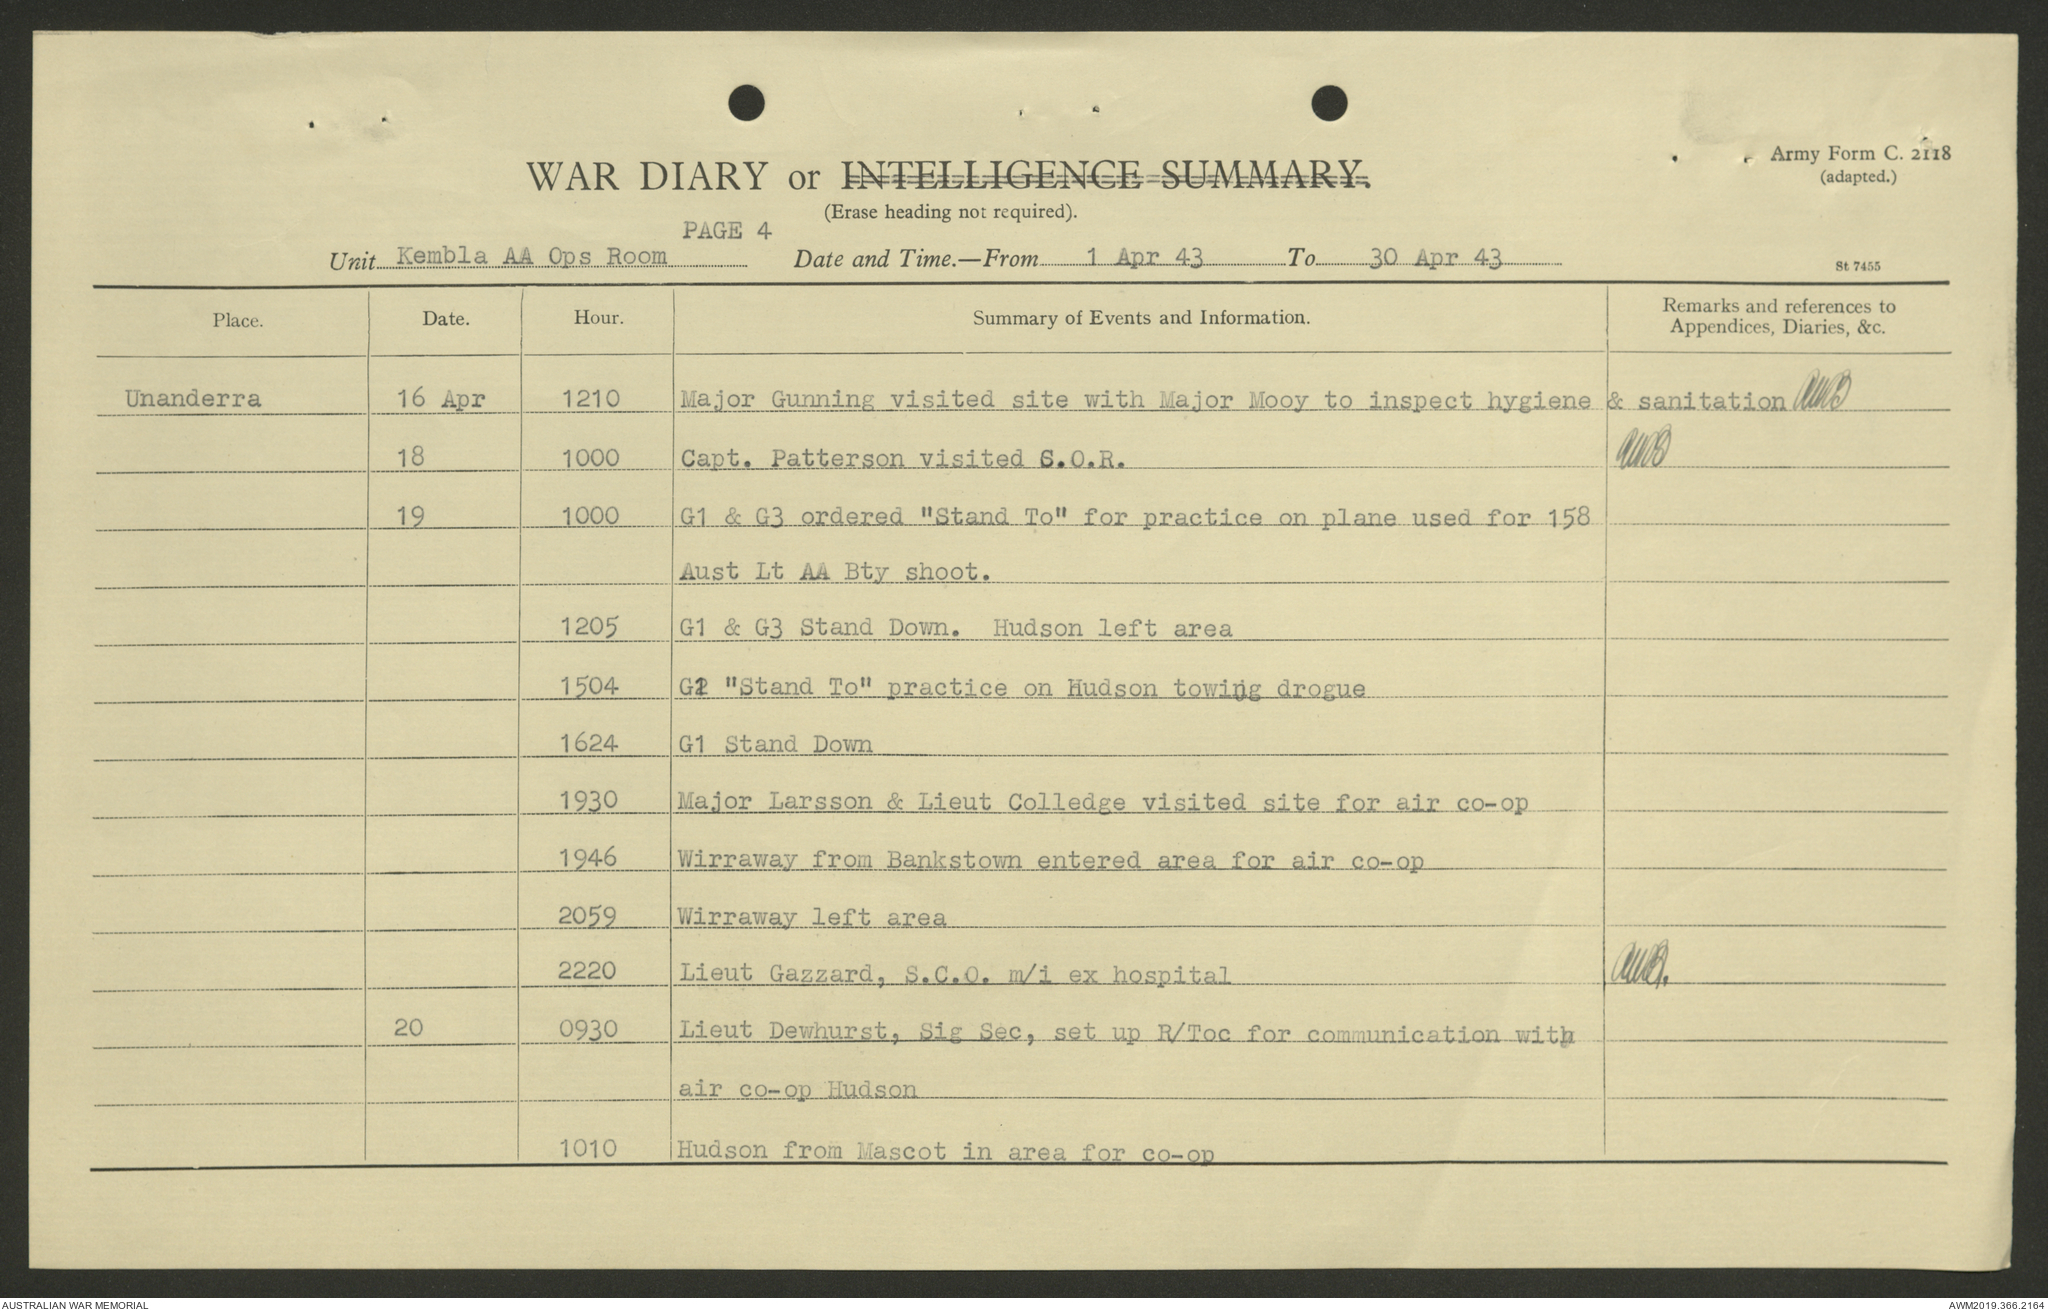 Army Form C. 2118
(adapted.)
WAR DIARY or INTELLIGENCE SUMMARY.
(Erase heading not required).
PAGE 4
Unit Kembla AA Ops Room Date and Time.—From 1 Apr 43 To 30 Apr 43
St 7455
Place. Date. Hour. Summary of Events and Information. Remarks and references to
Appendices, Diaries, &c.
Unanderra 16 Apr 1210 Major Gunning visited site with Major Mooy to inspect hygiene & sanitation
18 1000 Capt. Patterson visited S.O.R.
19 1000 G1 & G3 ordered "Stand To" for practice on plane used for 158
Aust Lt AA Bty shoot.
1205 G1 & G3 Stand Down. Hudson left area
1504 "Stand To" practice on Hudson towing drogue
1624 G1 Stand Down
1930 Major Larsson & Lieut Colledge visited site for air co-op
1946 Wirraway from Bankstown entered area for air co-op
2059 Wirraway left area
2220 Lieut Gazzard, S.C.O. m/i ex hospital
20 0930 Lieut Dewhurst, Sig Sec, set up R/Toc for communication with
air co-op Hudson
1010 Hudson from Mascot in area for co-op
AUSTRALIAN WAR MEMORIAL AWM2019.366.2164